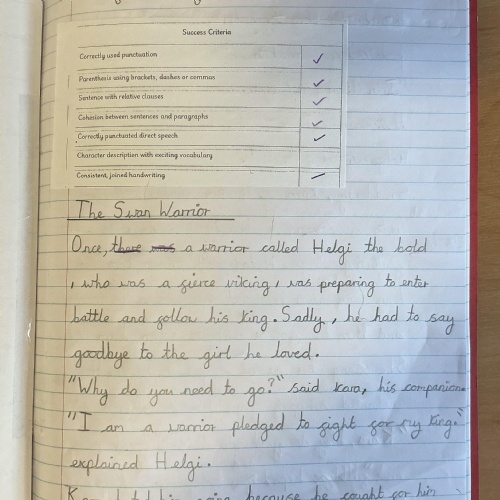 Success Criteria
Correctly used punctuation ✓
Parenthesis using brackets, dashes or commas ✓
Sentence with relative clauses ✓
Cohesion between sentences and paragraphs ✓
Correctly punctuated direct speech ✓
Character description with exciting vocabulary
Consistent, joined handwriting
The Swan Warrior
Once, there was a warrior called Helgi the bold
, who was a fierce viking, was preparing to enter
battle and follow his king. Sadly, he had to say
goodbye to the girl he loved.
"Why do you need to go?" said kara, his companion.
"I am a warrior pledged to fight for my king."
explained Helgi.
because he fought for him